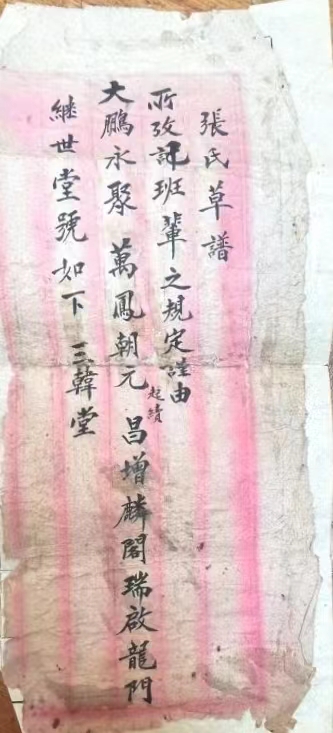 張氏草譜
所攷記班輩之規定註由起績
大鵬永聚 萬鳳朝元 昌增麟閣瑞啟龍門
継世堂號如下 三韓堂